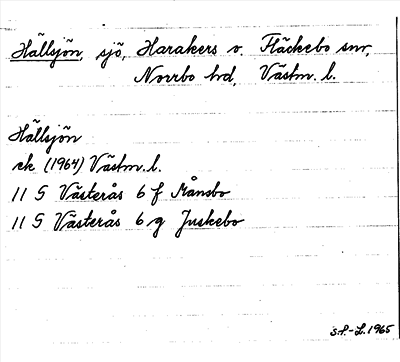 Hällsjön, sjö, Harakers o. Fläckebo snr,
Norrbo hd, Västm. l.
Hällsjön
ek (1964) Västm. l.
11 G Västerås 6 f Månsbo
11 G Västerås 6 g Juskebo
S.P.-L. 1965